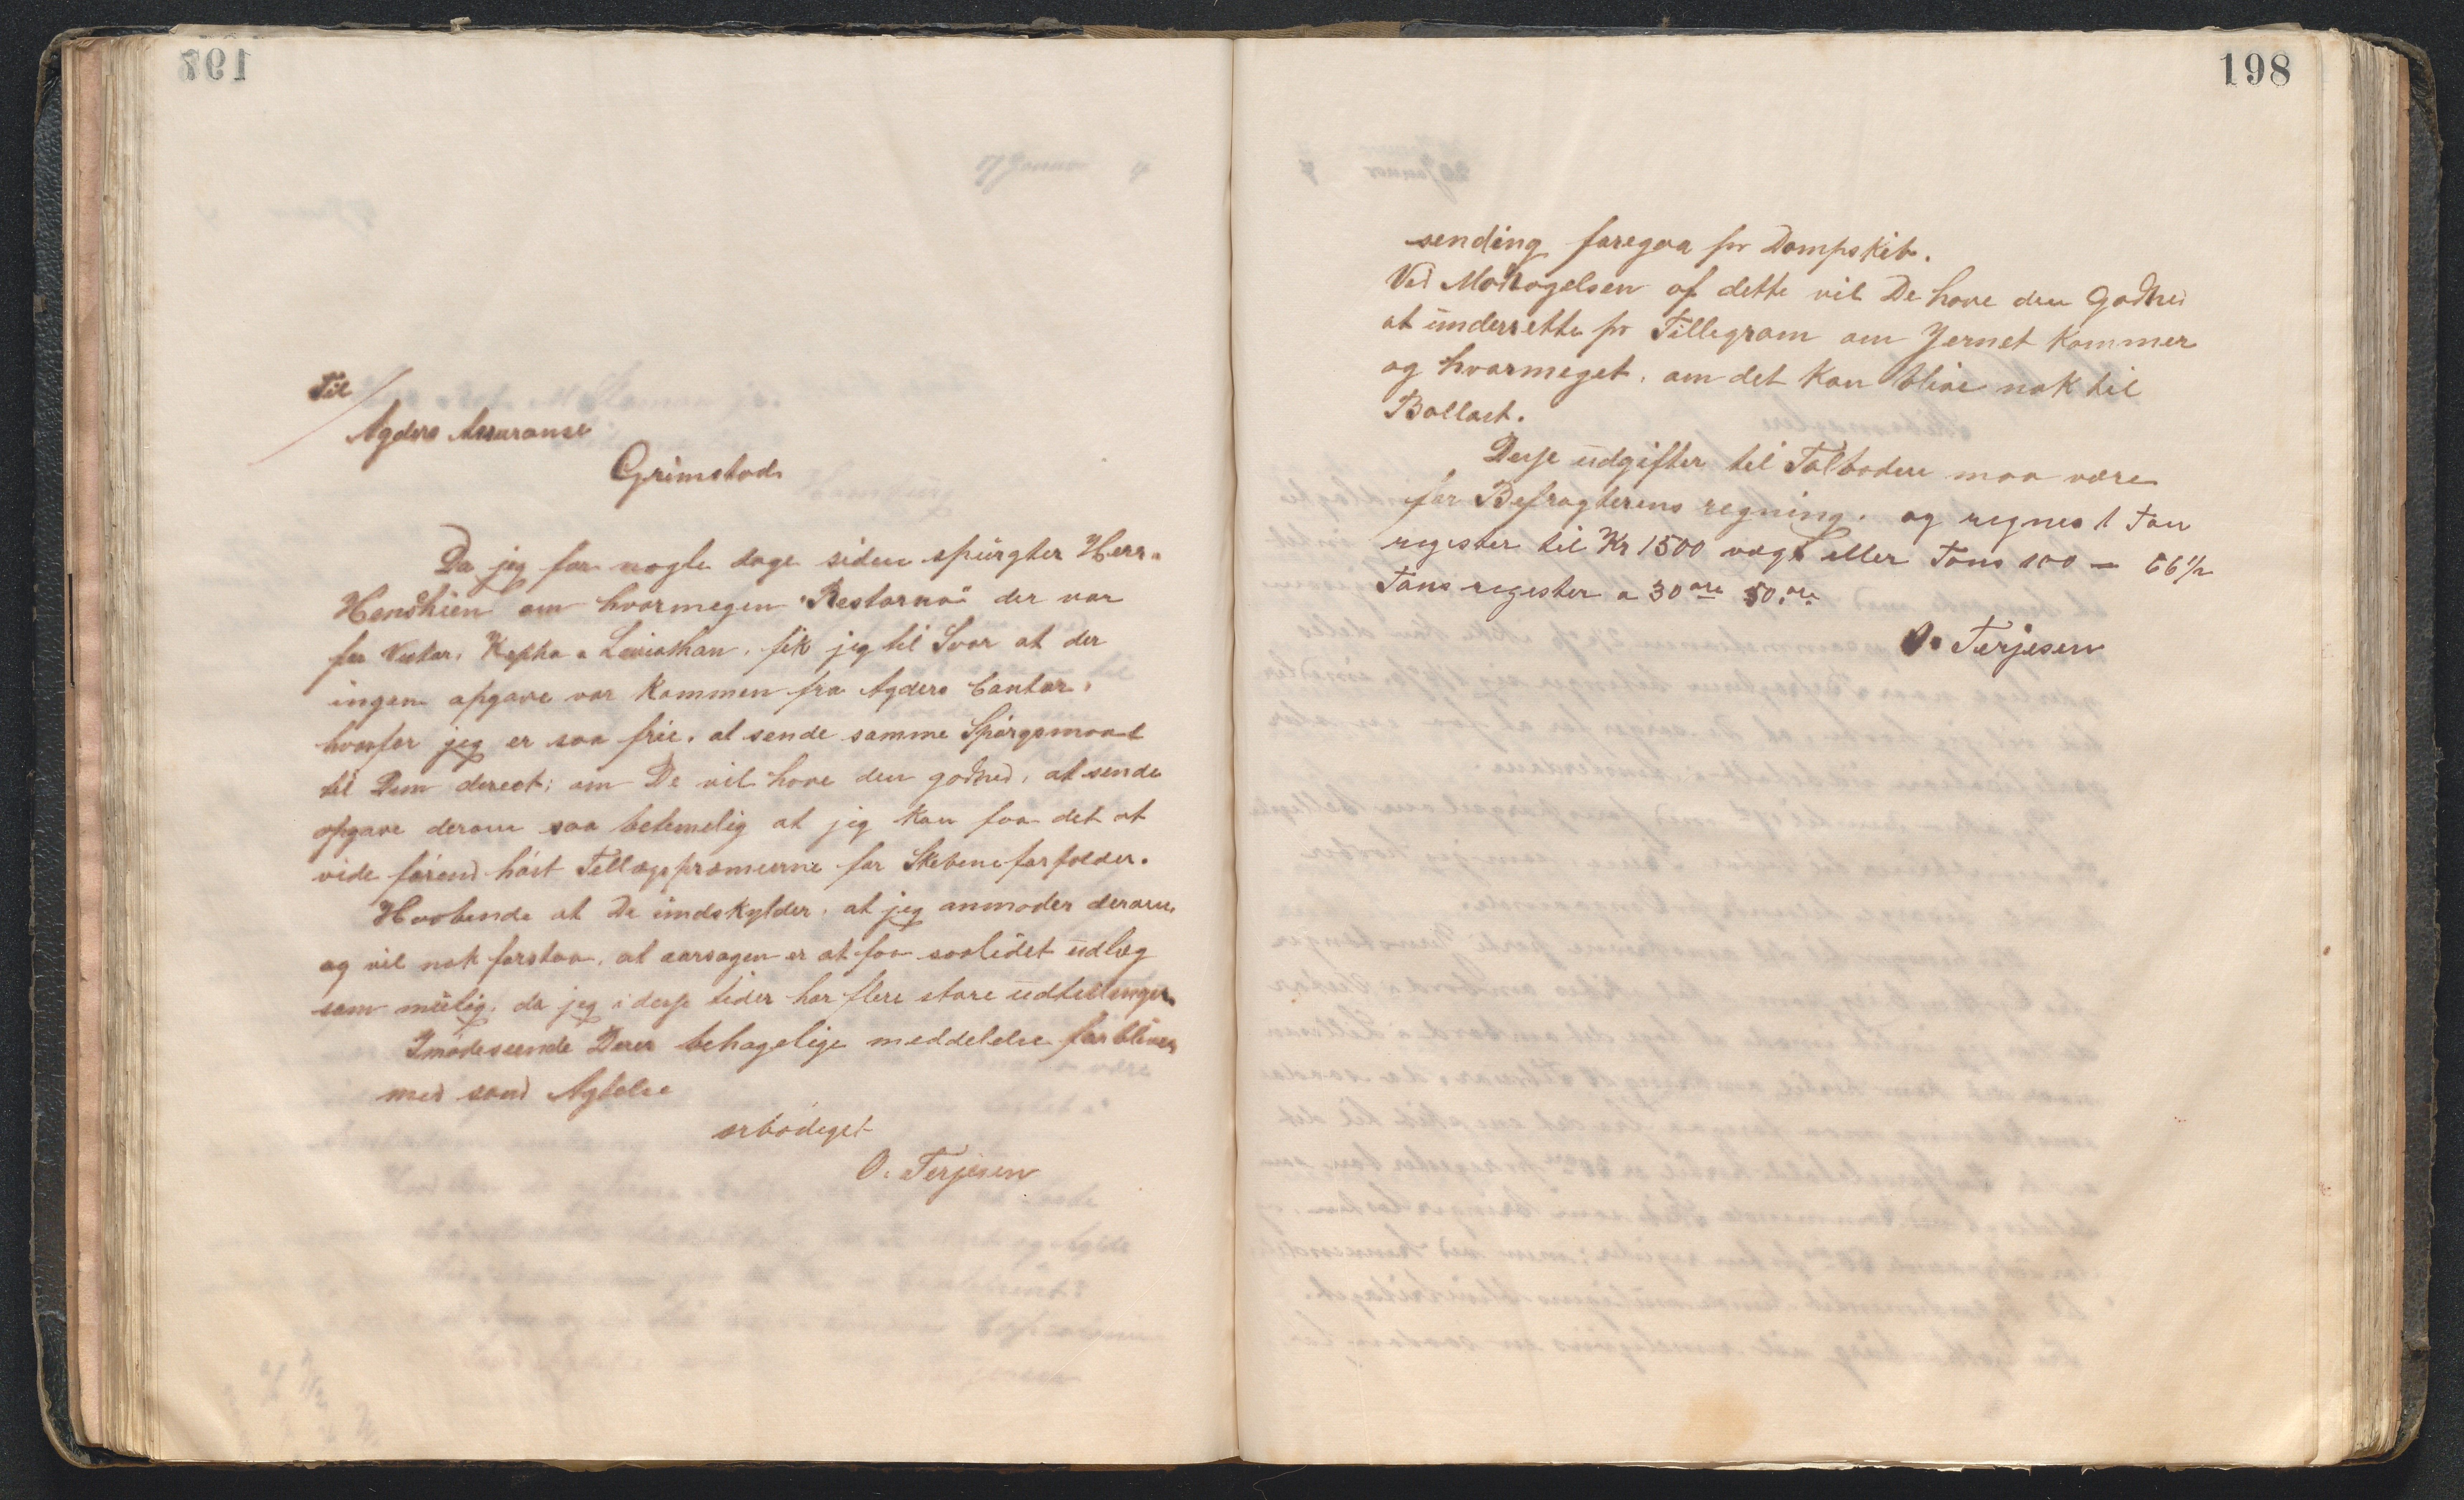 197
17 Januar 4
Til
Agders Assuranse
Grimstad
Da jeg for nogle dage siden spürgter Herr.
Henskien om hvormegen "Restorno" der var
for Victor, Kepha & Leviathan, fik jeg til Svar at der
ingen opgave var kommen fra Agders Contor,
hvorfor jeg er saa frie, at sende samme Spørgsmaal
til Dem derect; om De vil have den godhed, at sende
opgave derom saa betemelig at jeg kan faa det at
vide førend høist Tellægspræmierne for Skebene forfolder.
Haabende at De undskylder, at jeg anmoder derom,
og vil nok forstaa, at aarsagen er at faa saalidet udlæg
som mülig, da jeg i desse tider har flere store udtellinger.
Imødeseende Deres behagelige meddelelse forbliver
med sand Agtelse
ærbødigst
O. Terjesen
198
20 Januar
sending foregaa pr Dampskib.
Ved Modtagelsen af dette vil De have den Godhed
at ünderrette pr Tillegram om Jernet kommer
og hvormeget, om det kan blive nok til
Ballast.
Desse udgifter til Tolboden maa være
for Befragterens regning, og regnes 1 Ton
register til Kr 1500 vægt eller Tons 100 – 66½
Tons register a 30 øre 50 øre
O. Terjesen